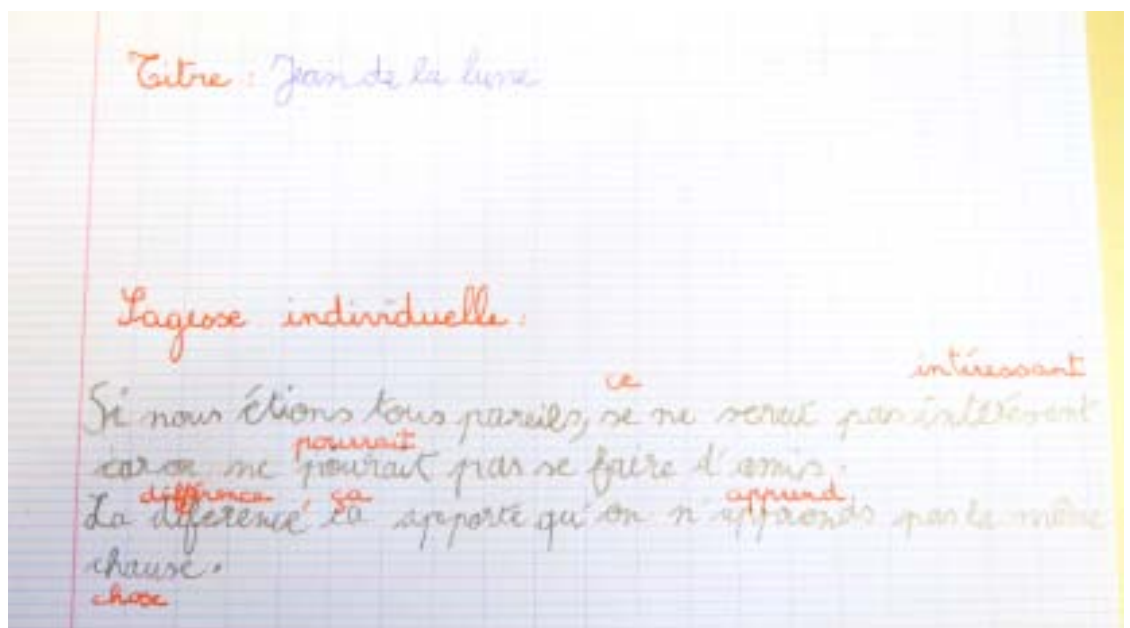 Titre : Jean de la lune
Sagesse individuelle :
ce intéressant
Si nous étions tous pareils, se ne serait pas intéresent
pourrait
car on ne pourait pas se faire d'amis.
différence, ça apprend
La diference ca apporte qu'on n'apprends pas la même
chause.
chose